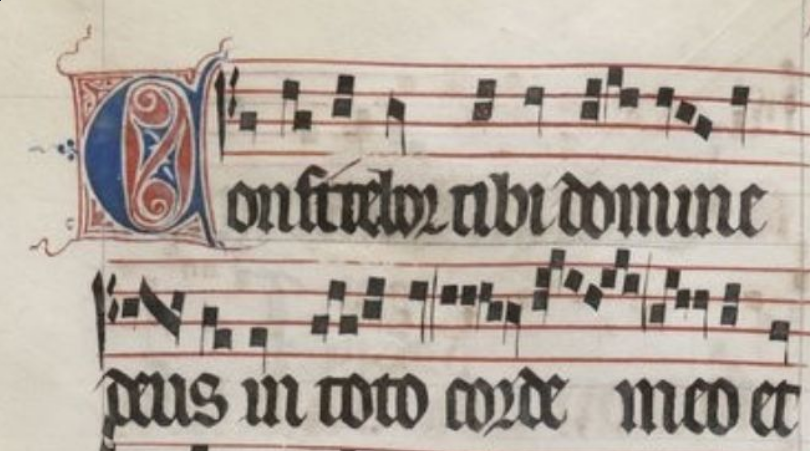 Confitebor tibi domine
deus in toto corde meo et